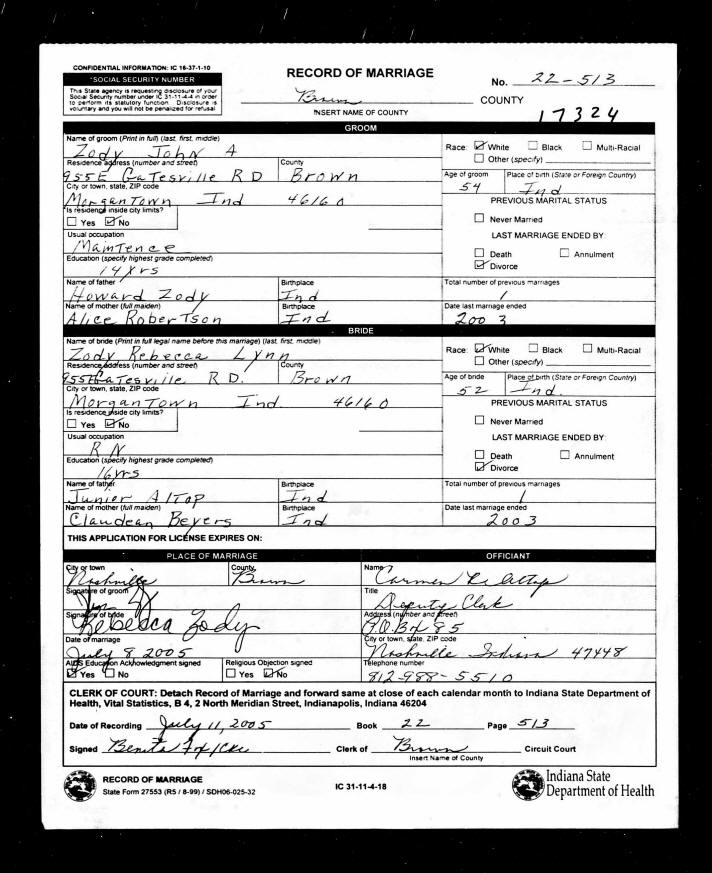 CONFIDENTIAL INFORMATION: IC 16-37-1-10
*SOCIAL SECURITY NUMBER
This State agency is requesting disclosure of your
Social Security number under IC 31-11-4-4 in order
to perform its statutory function. Disclosure is
voluntary and you will not be penalized for refusal.
RECORD OF MARRIAGE
No. 22-513
Brown COUNTY
INSERT NAME OF COUNTY
17324
GROOM
Name of groom (Print in full) (last, first, middle)
Zody John A
Race: White Black Multi-Racial
Other (specify)
Residence address (number and street) County
955E Gatesville RD Brown
Age of groom Place of birth (State or Foreign Country)
54 Ind
City or town, state, ZIP code
Morgantown Ind 46160
PREVIOUS MARITAL STATUS
*Is residence inside city limits?
Yes No
Never Married
Usual occupation
Maintence
LAST MARRIAGE ENDED BY:
Death Annulment
Divorce
Education (specify highest grade completed)
14 yrs
Name of father Birthplace
Howard Zody Ind
Total number of previous marriages
1
Name of mother (full maiden) Birthplace
Alice Robertson Ind
Date last marriage ended
2003
BRIDE
Name of bride (Print in full legal name before this marriage) (last, first, middle)
Zody Rebecca Lynn
Race: White Black Multi-Racial
Other (specify)
Residence address (number and street) County
955E Gatesville RD. Brown
Age of bride Place of birth (State or Foreign Country)
52 Ind.
City or town, state, ZIP code
Morgantown Ind 46160
PREVIOUS MARITAL STATUS
Is residence inside city limits?
Yes No
Never Married
Usual occupation
RN
LAST MARRIAGE ENDED BY:
Death Annulment
Divorce
Education (specify highest grade completed)
16 yrs
Name of father Birthplace
Junior Altop Ind
Total number of previous marriages
1
Name of mother (full maiden) Birthplace
Claudean Beyers Ind
Date last marriage ended
2003
THIS APPLICATION FOR LICENSE EXPIRES ON:
PLACE OF MARRIAGE
OFFICIANT
City or town County
Nashville Brown
Name
Carmen
Signature of groom
Title
Deputy Clerk
Signature of bride
Rebecca Zody
Address (number and street)
P.O. Box 85
Date of marriage
July 8 2005
City or town, state, ZIP code
Nashville Indiana 47448
AIDS Education Acknowledgment signed Religious Objection signed
Yes No Yes No
Telephone number
812-988-5510
CLERK OF COURT: Detach Record of Marriage and forward same at close of each calendar month to Indiana State Department of
Health, Vital Statistics, B 4, 2 North Meridian Street, Indianapolis, Indiana 46204
Date of Recording July 11, 2005 Book 22 Page 513
Signed Benita Clerk of Brown Circuit Court
Insert Name of County
RECORD OF MARRIAGE
State Form 27553 (R5 / 8-99) / SDH06-025-32
IC 31-11-4-18
Indiana State
Department of Health